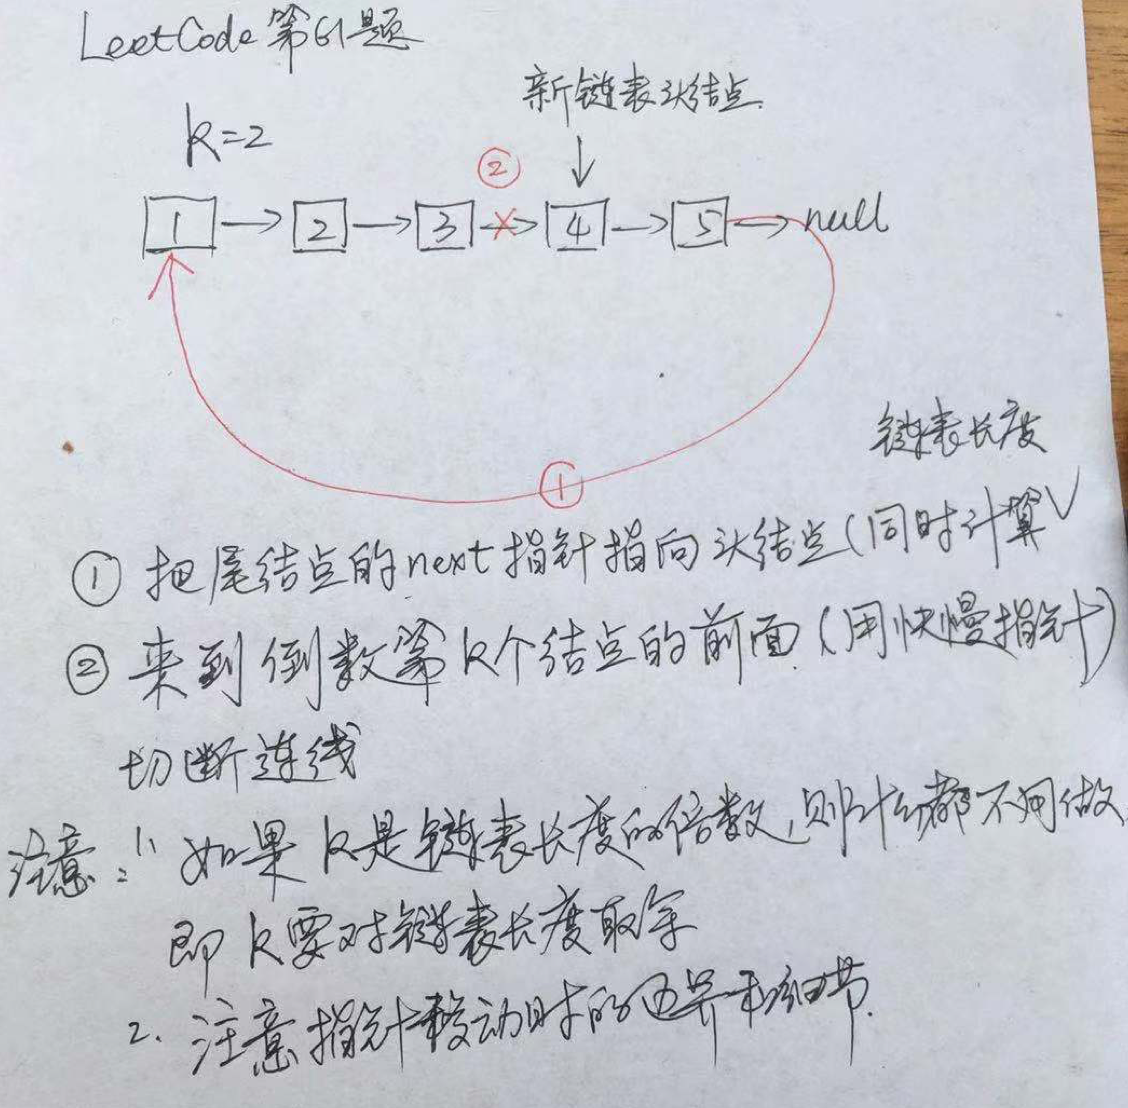 LeetCode 第61题
新链表头结点
k=2
②
1 → 2 → 3 → 4 → 5 → null
①
链表长度
① 把尾结点的next指针指向头结点(同时计算
② 来到倒数第k个结点的前面(用快慢指针)
切断连线
注意: 1、如果k是链表长度的倍数,则什么都不用做
即k要对链表长度取余
2. 注意指针移动时的边界和细节.